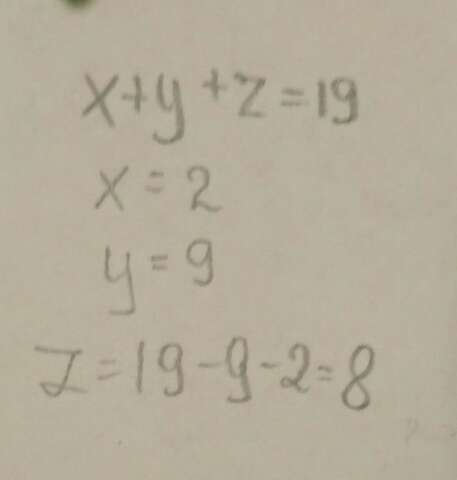 x+y+z=19
x=2
y=9
z=19-9-2=8